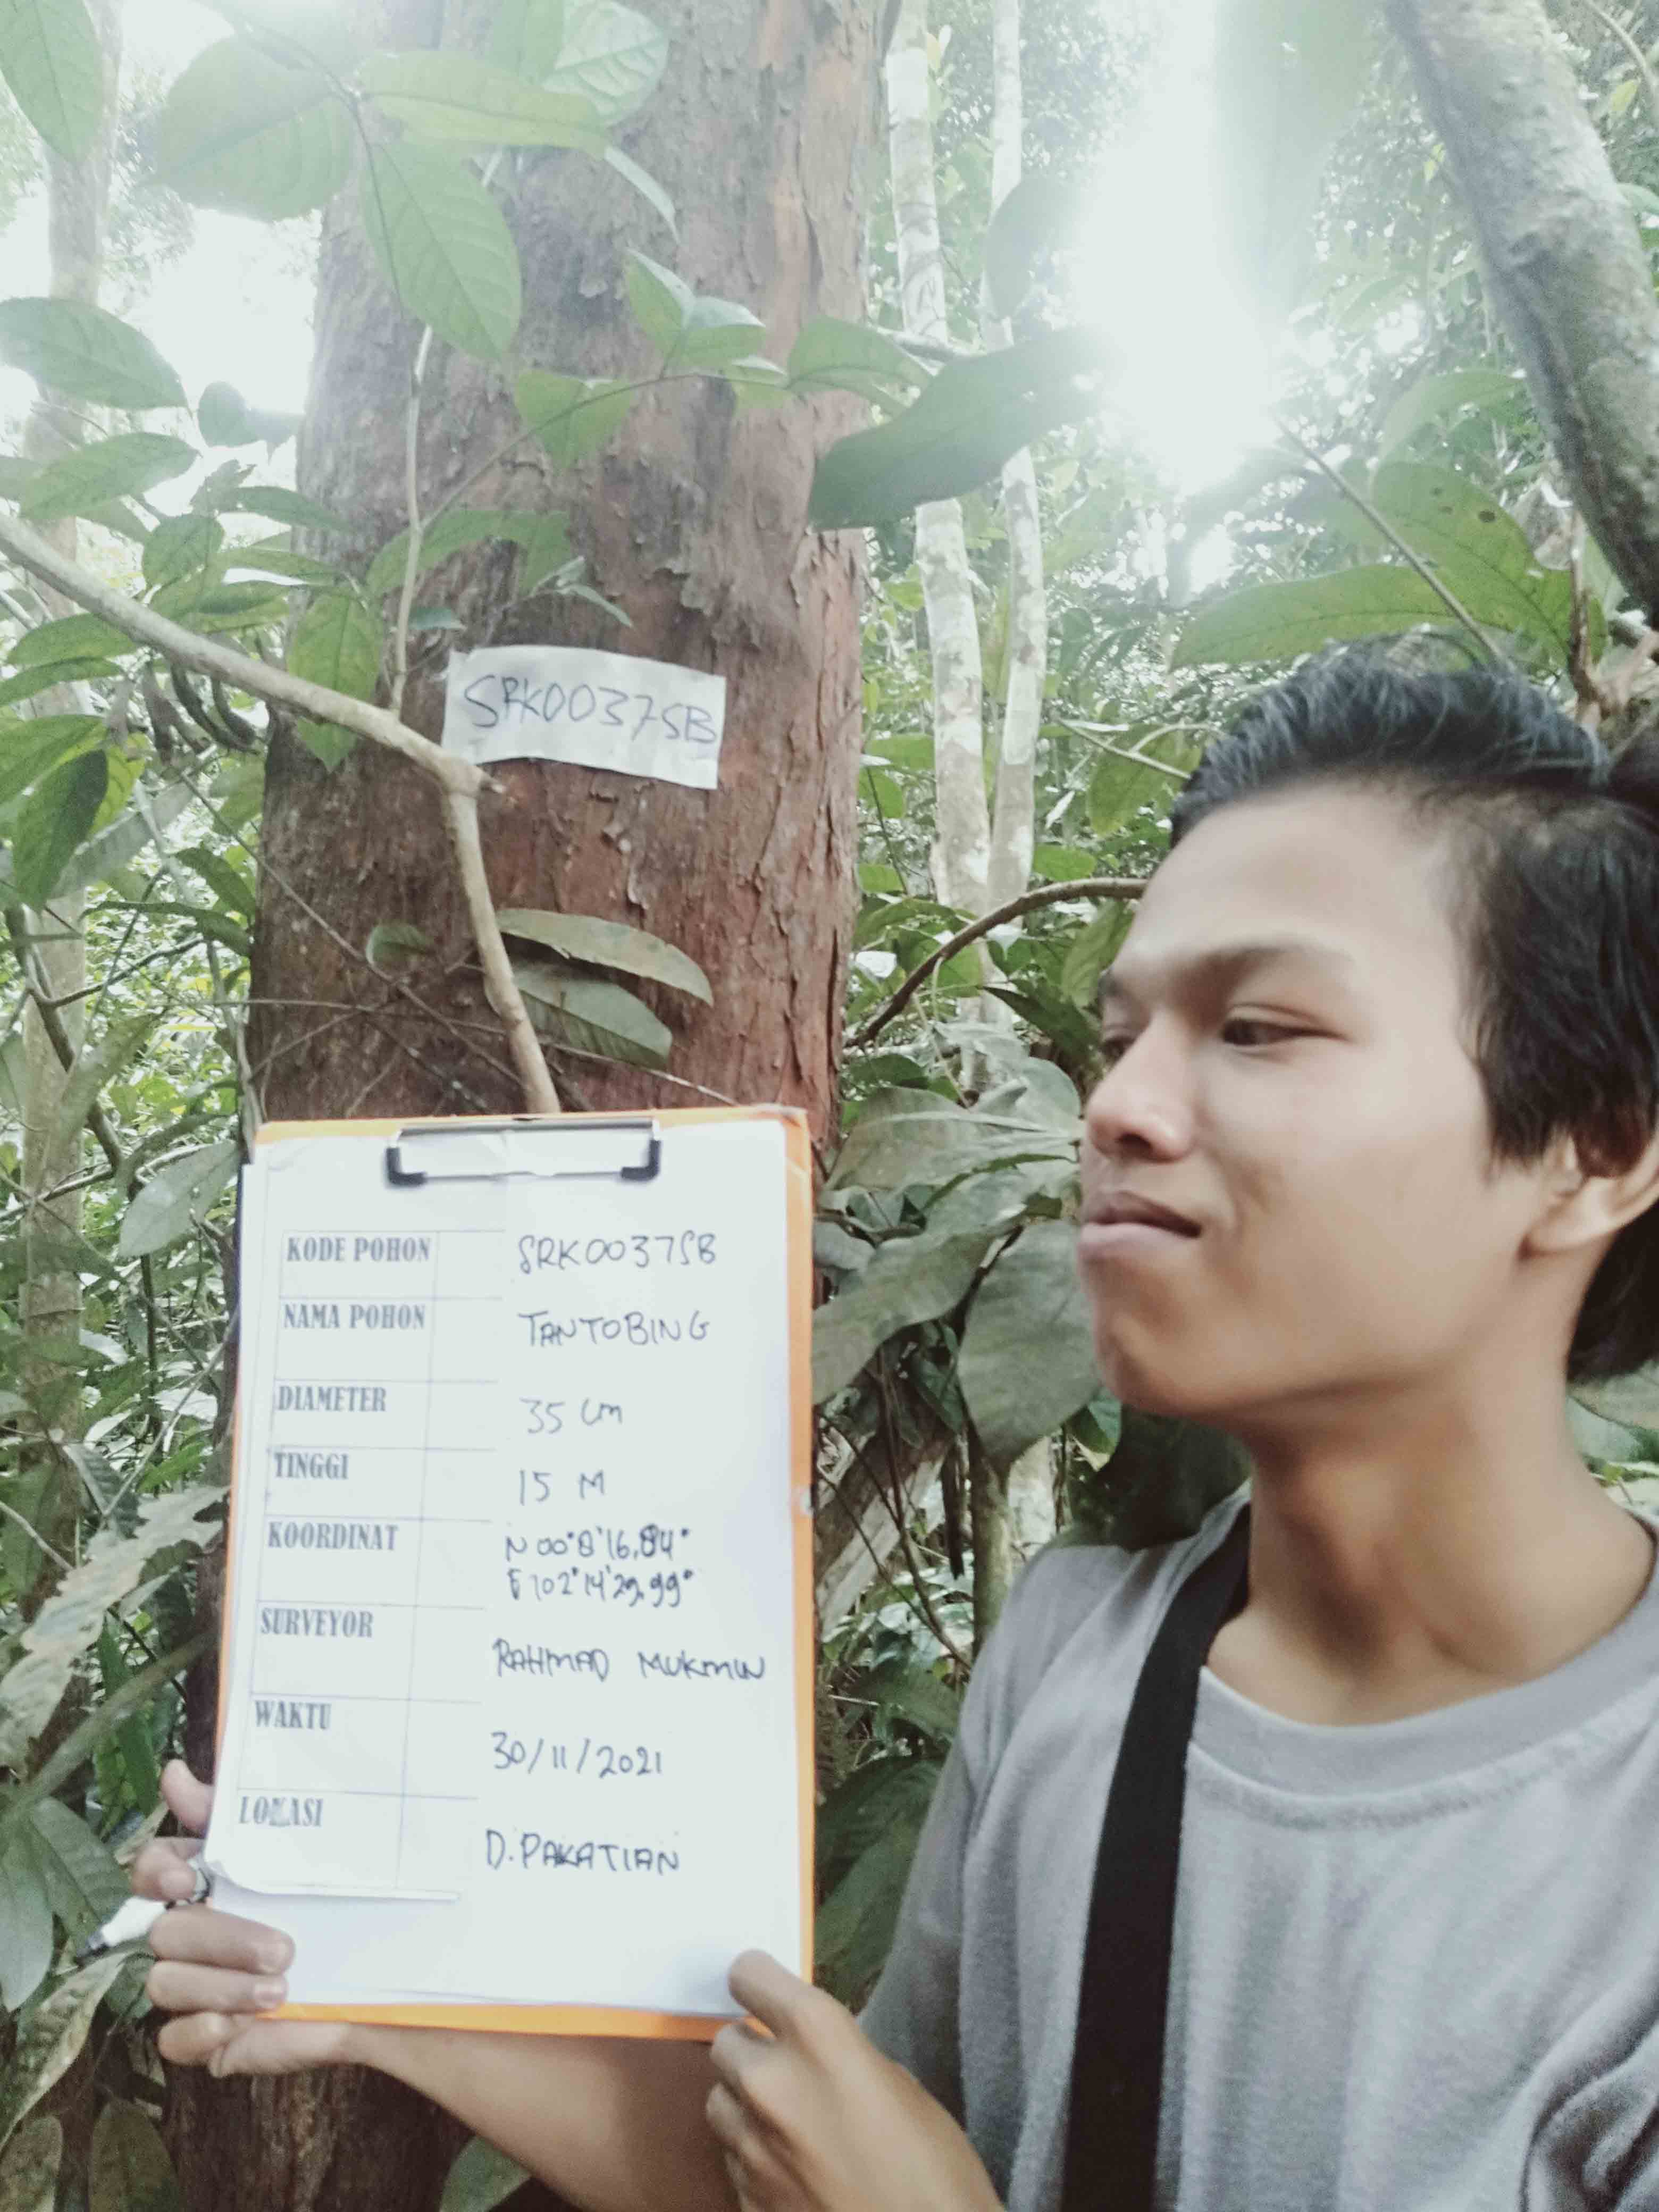 SRK00375B
KODE POHON SRK00375B
NAMA POHON TANTOBING
DIAMETER 35 cm
TINGGI 15 M
KOORDINAT N 00°8'16,84"
E 102°14'29,99"
SURVEYOR RAHMAD MUKMIN
WAKTU 30/11/2021
LOKASI D.PAKATIAN